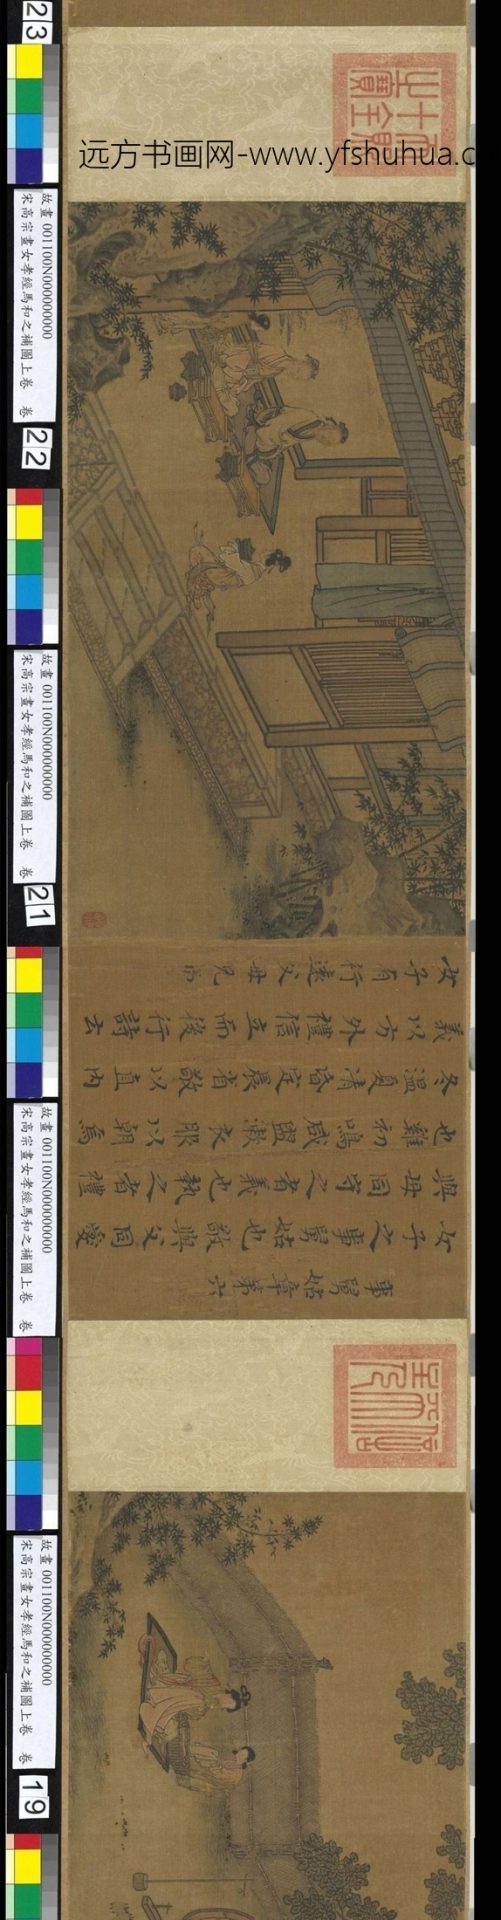 远方书画网-www.yfshuhua.c
23
故畫 001100N000000000
宋高宗書女孝經馬和之補圖上卷 卷
22
故畫 001100N000000000
宋高宗書女孝經馬和之補圖上卷 卷
21
故畫 001100N000000000
宋高宗書女孝經馬和之補圖上卷 卷
故畫 001100N000000000
宋高宗書女孝經馬和之補圖上卷 卷
19
事舅姑章第六
女子之事舅姑也敬與父同愛
與母同守之者義也執之者禮
也雞初鳴咸盥漱衣服以朝焉
冬溫夏清昏定晨省敬以直內
義以方外禮信立而後行詩云
女子有行遠父母兄弟